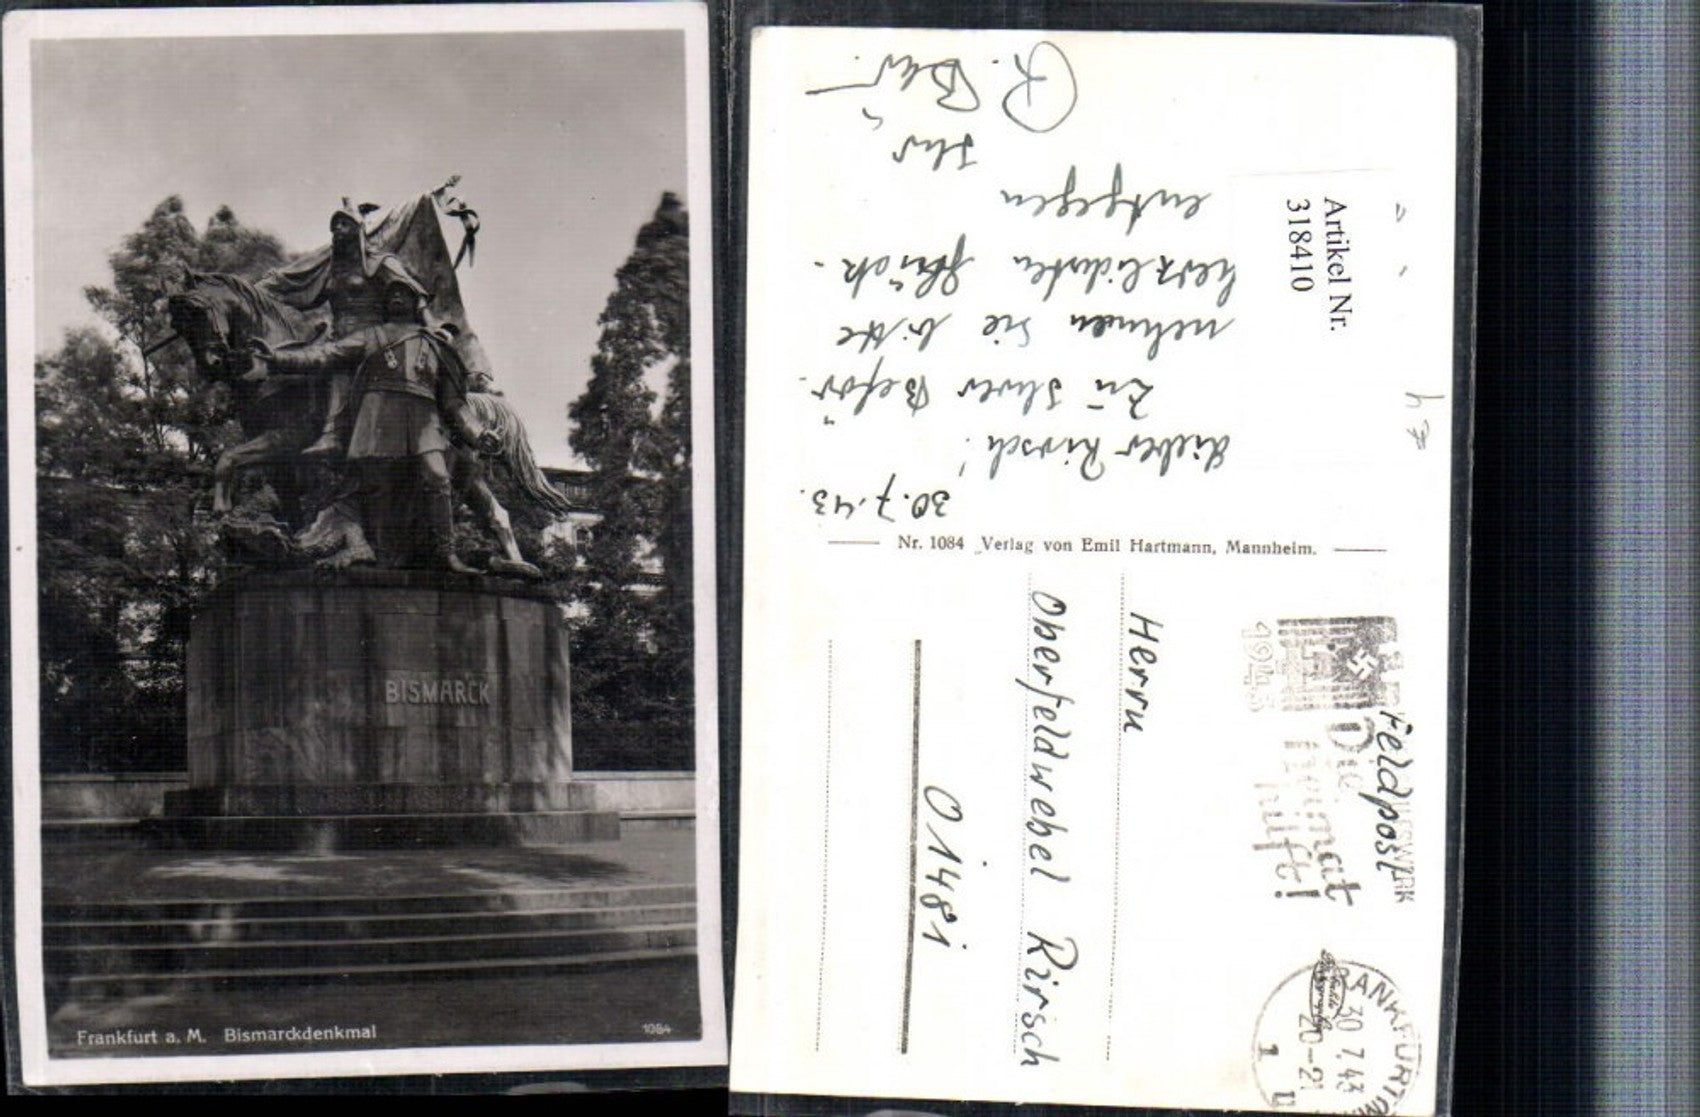 BISMARCK
Frankfurt a. M. Bismarckdenkmal
1084
Artikel Nr.
318410
30.7.43.
Lieber Kirsch!
Zu Ihrer Beför.
nehmen Sie bitte
herzlichsten Glück-
entgegen
Ihr
R.
Nr. 1084 Verlag von Emil Hartmann, Mannheim.
Feldpost
1943
Die
Heimat
hilft!
FRANKFURT
30.7.43
20-2
1 u
Herrn
Oberfeldwebel Kirsch
01481